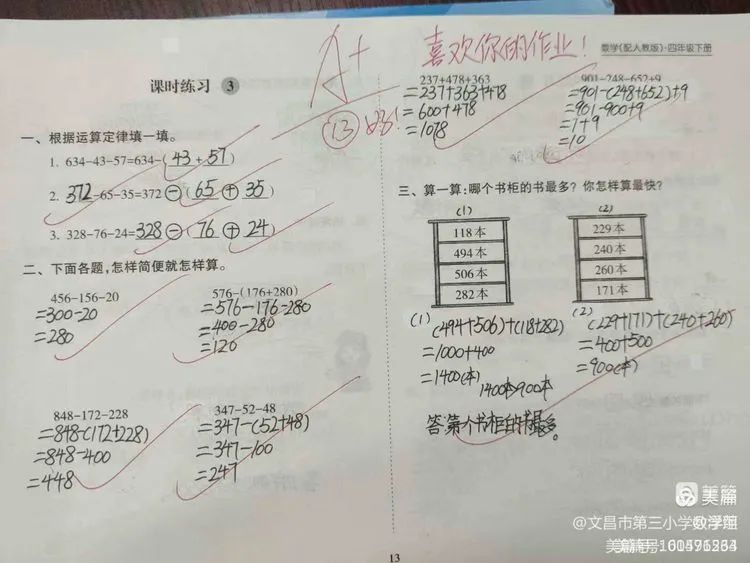 数学(配人教版)·四年级下册
A+
喜欢你的作业!
13 好!
课时练习 3
一、根据运算定律填一填。
1. 634-43-57=634-(43+57)
2. 372-65-35=372-(65+35)
3. 328-76-24=328-(76+24)
二、下面各题,怎样简便就怎样算。
456-156-20
=300-20
=280
576-(176+280)
=576-176-280
=400-280
=120
848-172-228
=848-(172+228)
=848-400
=448
347-52-48
=347-(52+48)
=347-100
=247
237+478+363
=237+363+478
=600+478
=1078
901-248-652+9
=901-(248+652)+9
=901-900+9
=1+9
=10
三、算一算:哪个书柜的书最多?你怎样算最快?
(1)
118本
494本
506本
282本
(2)
229本
240本
260本
171本
(1)
(494+506)+(118+282)
=1000+400
=1400(本)
1400本>900本
(2)
(229+171)+(240+260)
=400+500
=900(本)
答:第个书柜的书最多。
13
美篇
@文昌市第三小学
美篇号